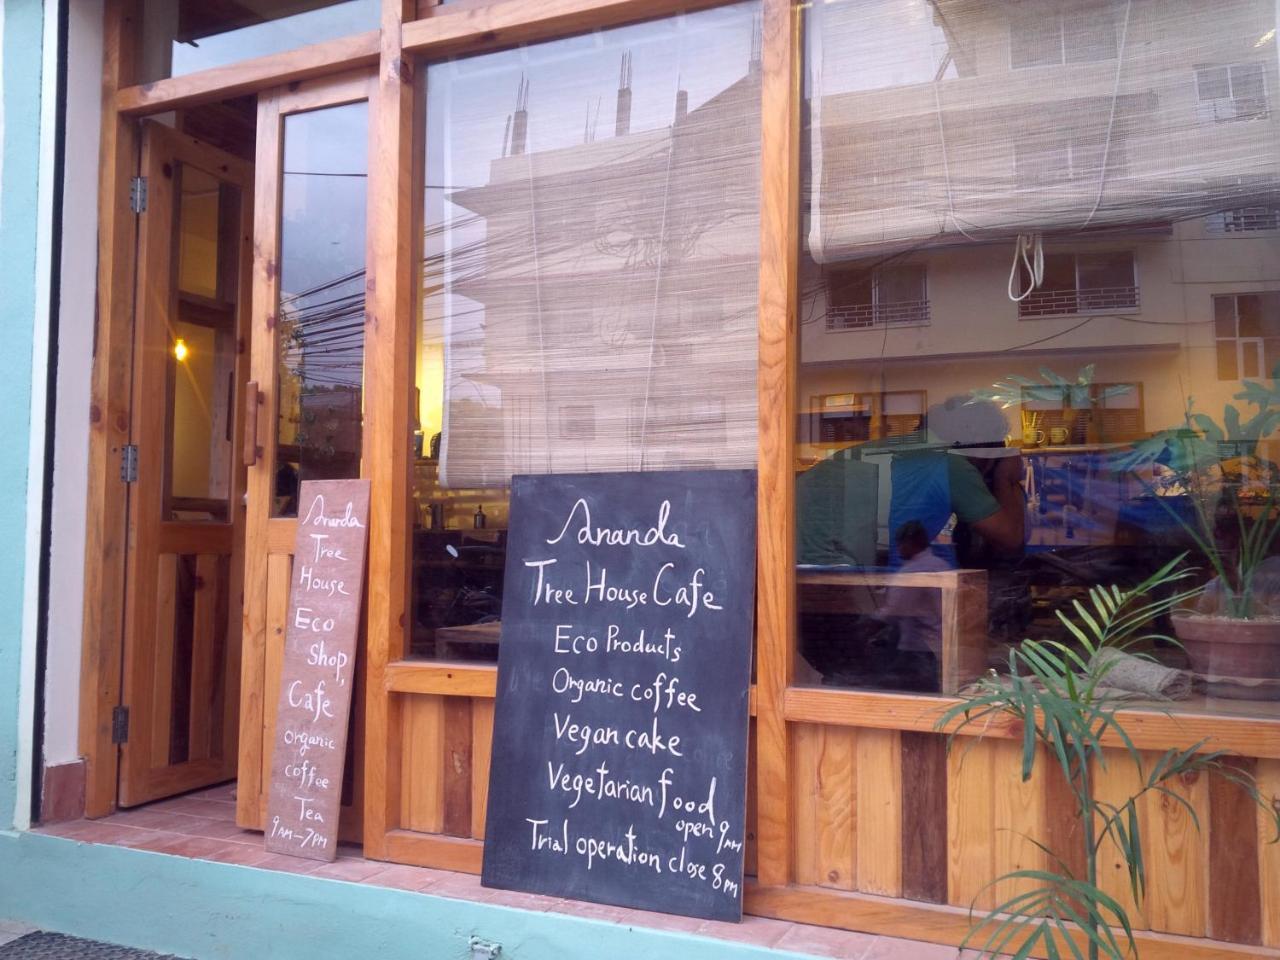 Ananda
Tree
House
Eco
Shop,
Cafe
organic
coffee
Tea
9AM-7PM
Ananda
Tree House Cafe
Eco Products
Organic coffee
Vegan cake
Vegetarian food
open 9AM
Trial operation close 8PM